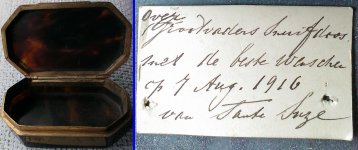 Over
Grootvaders Snuifdoos
met de beste wenschen
op 7 Aug. 1916
van Tante Suze